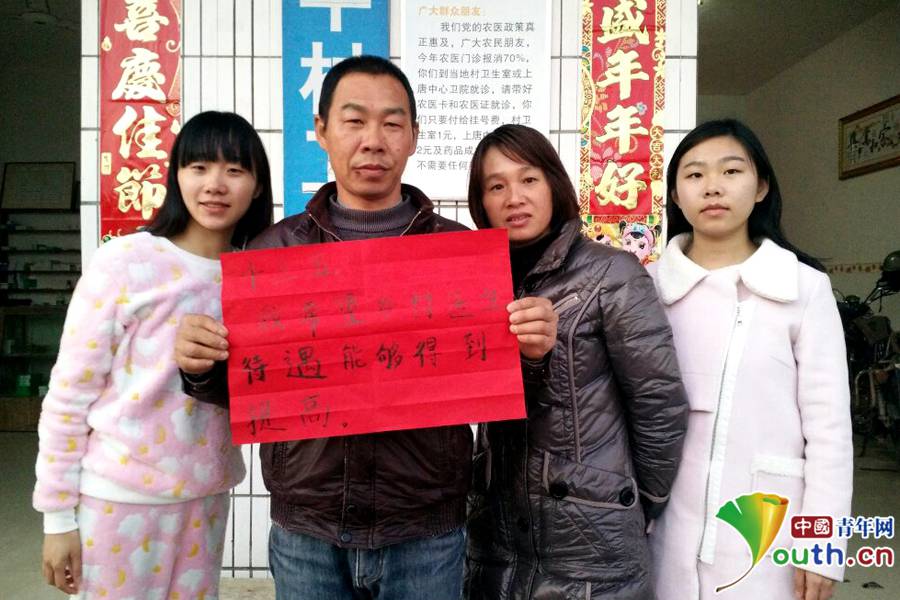 喜慶佳節
中村卫
广大群众朋友：
我们党的农医政策真
正惠及，广大农民朋友，
今年农医门诊报消70%，
你们到当地村卫生室或上
唐中心卫院就诊，请带好
农医卡和农医证就诊，你
们只要付给挂号费，村卫
生室1元，上唐
2元及药品成
不需要任何
盛年年好
大吉大
十三五
我希望乡村医生
待遇能够得到
提高。
中國青年网
Youth.cn